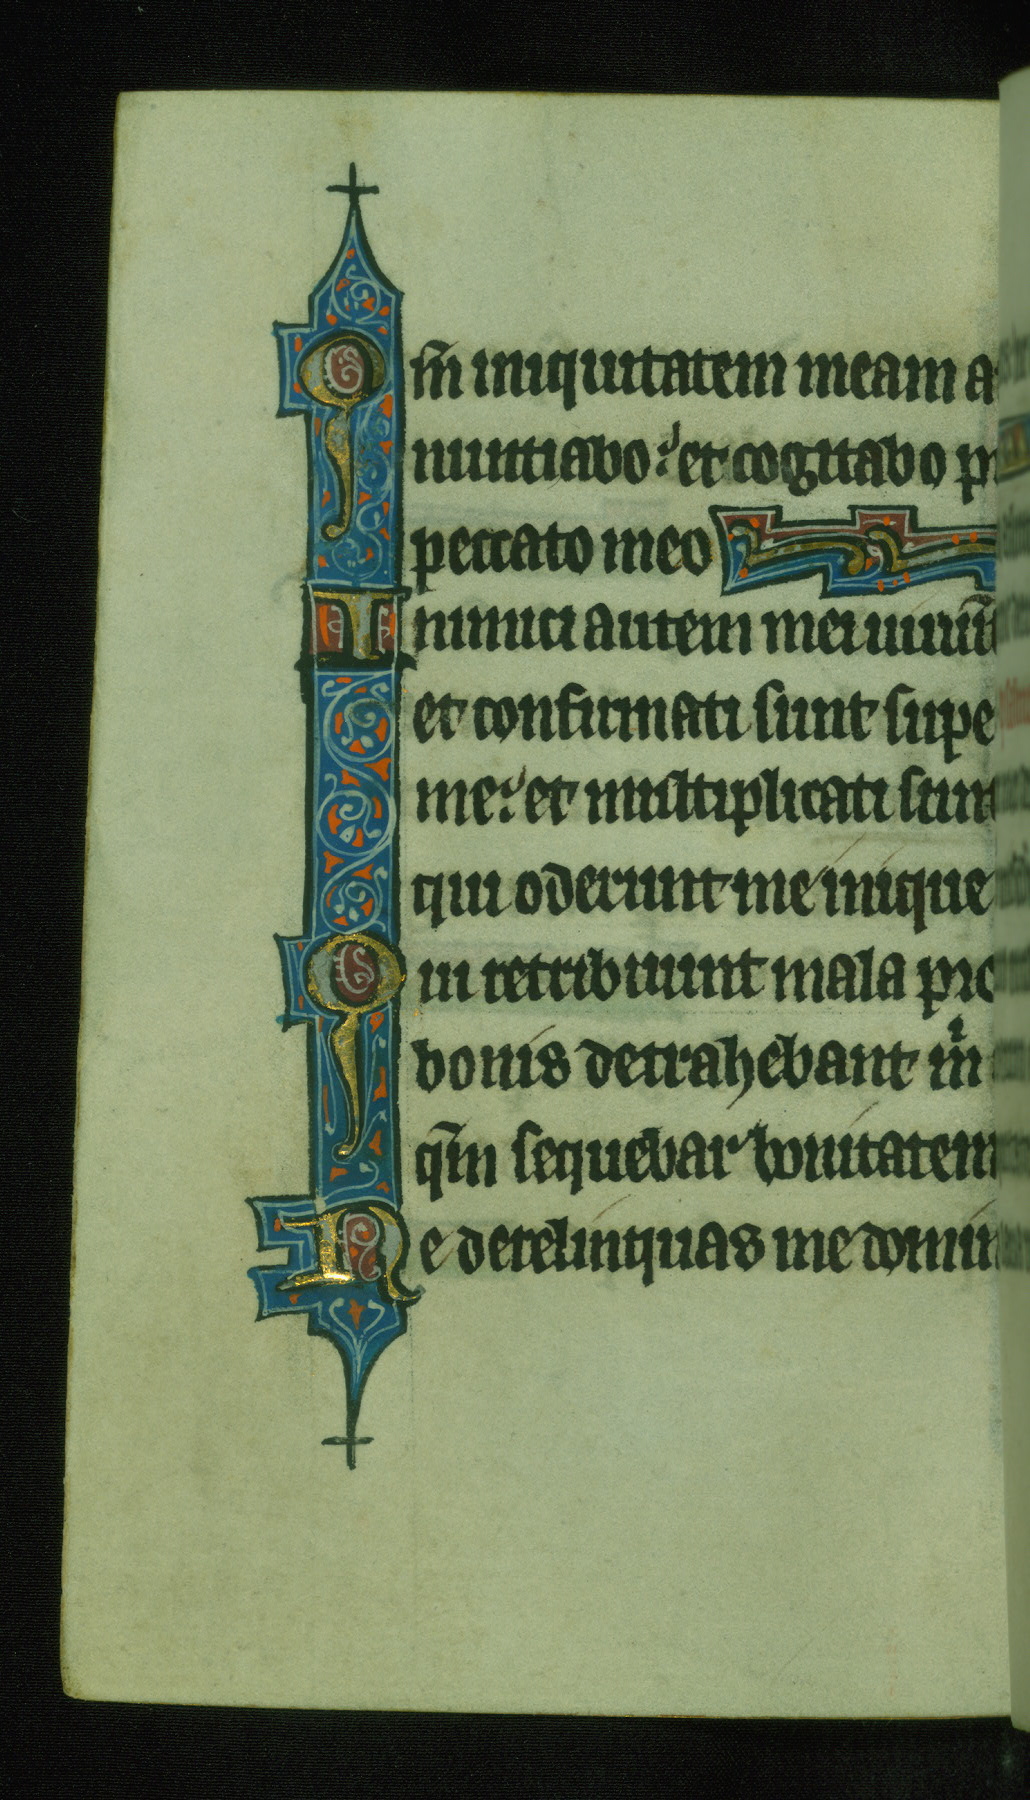 Qm̄ iniquitatem meam a
nuntiabo: et cogitabo pr
peccato meo
Inimici autem mei uiuūt
et confirmati sunt supe
me: et multiplicati sunt
qui oderunt me inique
Qui retribuunt mala pro
bonis detrahebant m̄
qm̄ sequebar bonitatem
Ne derelinquas me domin